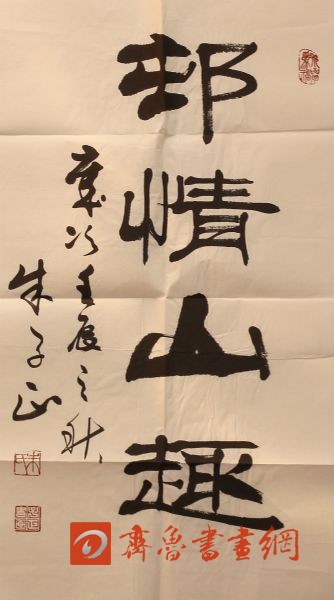 邨情山趣
歲次壬辰之秋
朱子正
齊魯書畫網